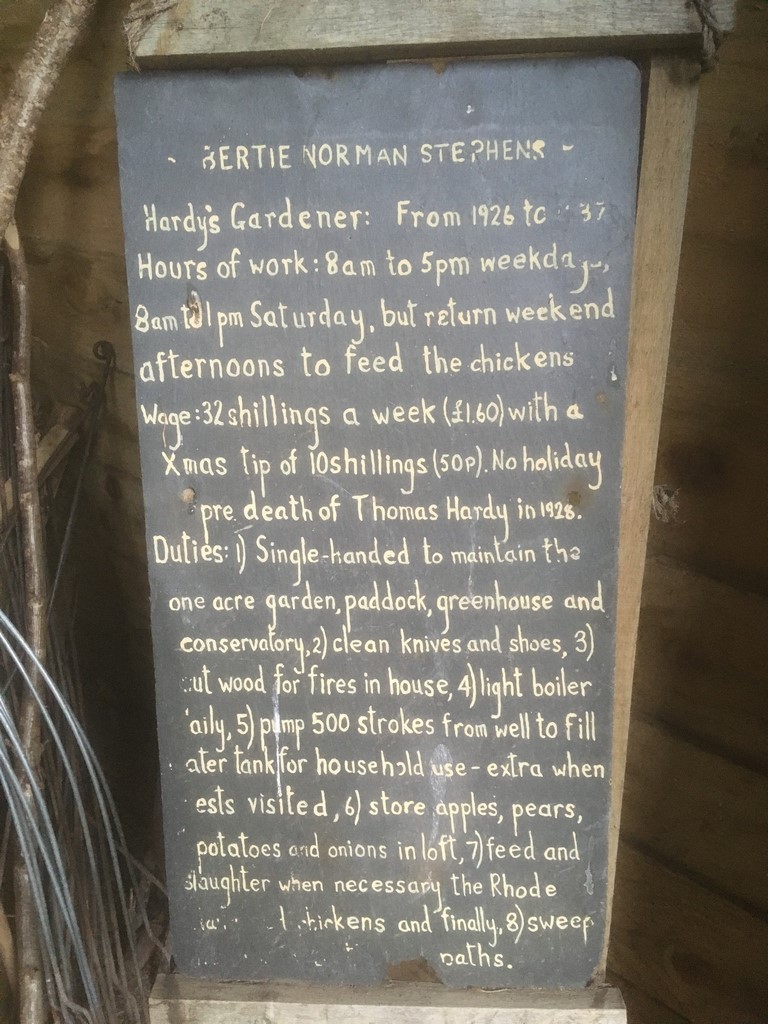 - BERTIE NORMAN STEPHENS -
Hardy's Gardener: From 1926 to 37
Hours of work: 8am to 5pm weekdays,
8am till 1pm Saturday, but return weekend
afternoons to feed the chickens
Wage: 32 shillings a week (£1.60) with a
Xmas tip of 10 shillings (50P). No holiday
pre death of Thomas Hardy in 1928.
Duties: 1) Single-handed to maintain the
one acre garden, paddock, greenhouse and
conservatory, 2) clean knives and shoes, 3)
ut wood for fires in house, 4) light boiler
aily, 5) pump 500 strokes from well to fill
ater tank for household use - extra when
ests visited, 6) store apples, pears,
potatoes and onions in loft, 7) feed and
slaughter when necessary the Rhode
chickens and finally, 8) sweep
paths.